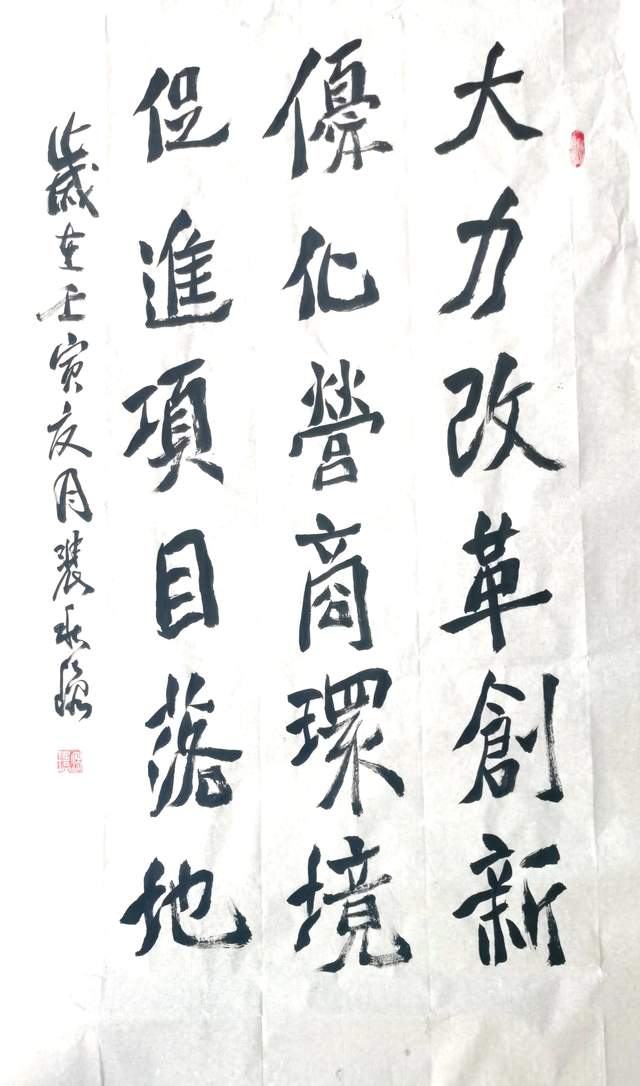 大力改革創新
優化營商環境
促進項目落地
歲在壬寅夏月裴